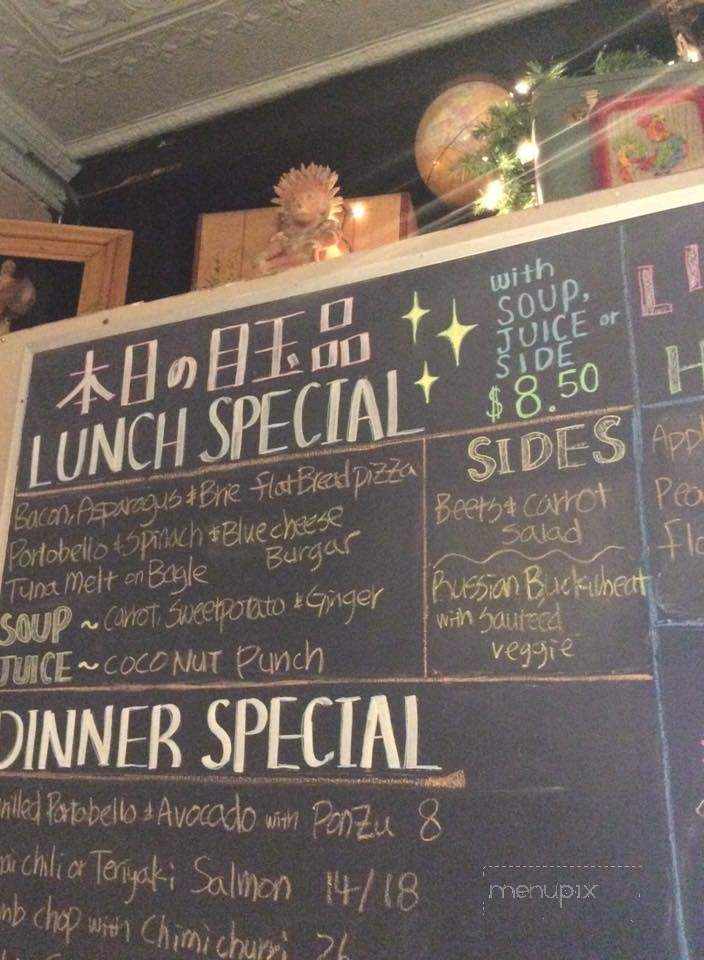 本日の目玉品
LUNCH SPECIAL
with
SOUP,
JUICE or
SIDE
$8.50
Bacon, Asparagus & Brie flatBread pizza
Portobello & Spinach & Blue cheese
Burgar
Tuna Melt on Bagle
SOUP ~ Carrot, Sweetpotato & Ginger
JUICE ~ COCONUT Punch
SIDES
Beets & carrot
Salad
Russian Buckwheat
with sauteed
veggie
DINNER SPECIAL
Portobello & Avocado with Ponzu 8
chili or Teriyaki Salmon 14/18
chop with Chimichurri 26
menupix